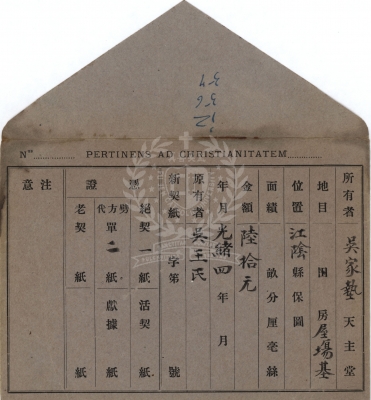 N°............ PERTINENS AD CHRISTIANITATEM............
所有者 吳家墊 天主堂
地目 圍 房屋場基
位置 江陰縣保圖
面績 畝分厘毫絲
金額 陸拾元
年月 光緒四年 月
原有者 吳王氏
新契紙 字第 號
絕契 一 紙 活契 紙
代方單 二 紙 獻據 紙
老契 紙 紙
證
注意